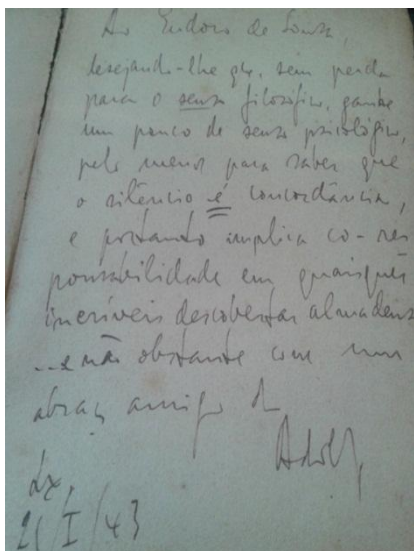 Ao Eudoro de Sousa,
desejando-lhe que, sem perda
para o senso filosófico, ganhe
um pouco de senso psicológico,
pelo menos para saber que
o silêncio é concordância,
e portanto implica co-res
ponsabilidade em quaisquer
incríveis descobertas almadenses
...e não obstante com um
abraço amigo do
Adolfo
Lx,
21/I/43